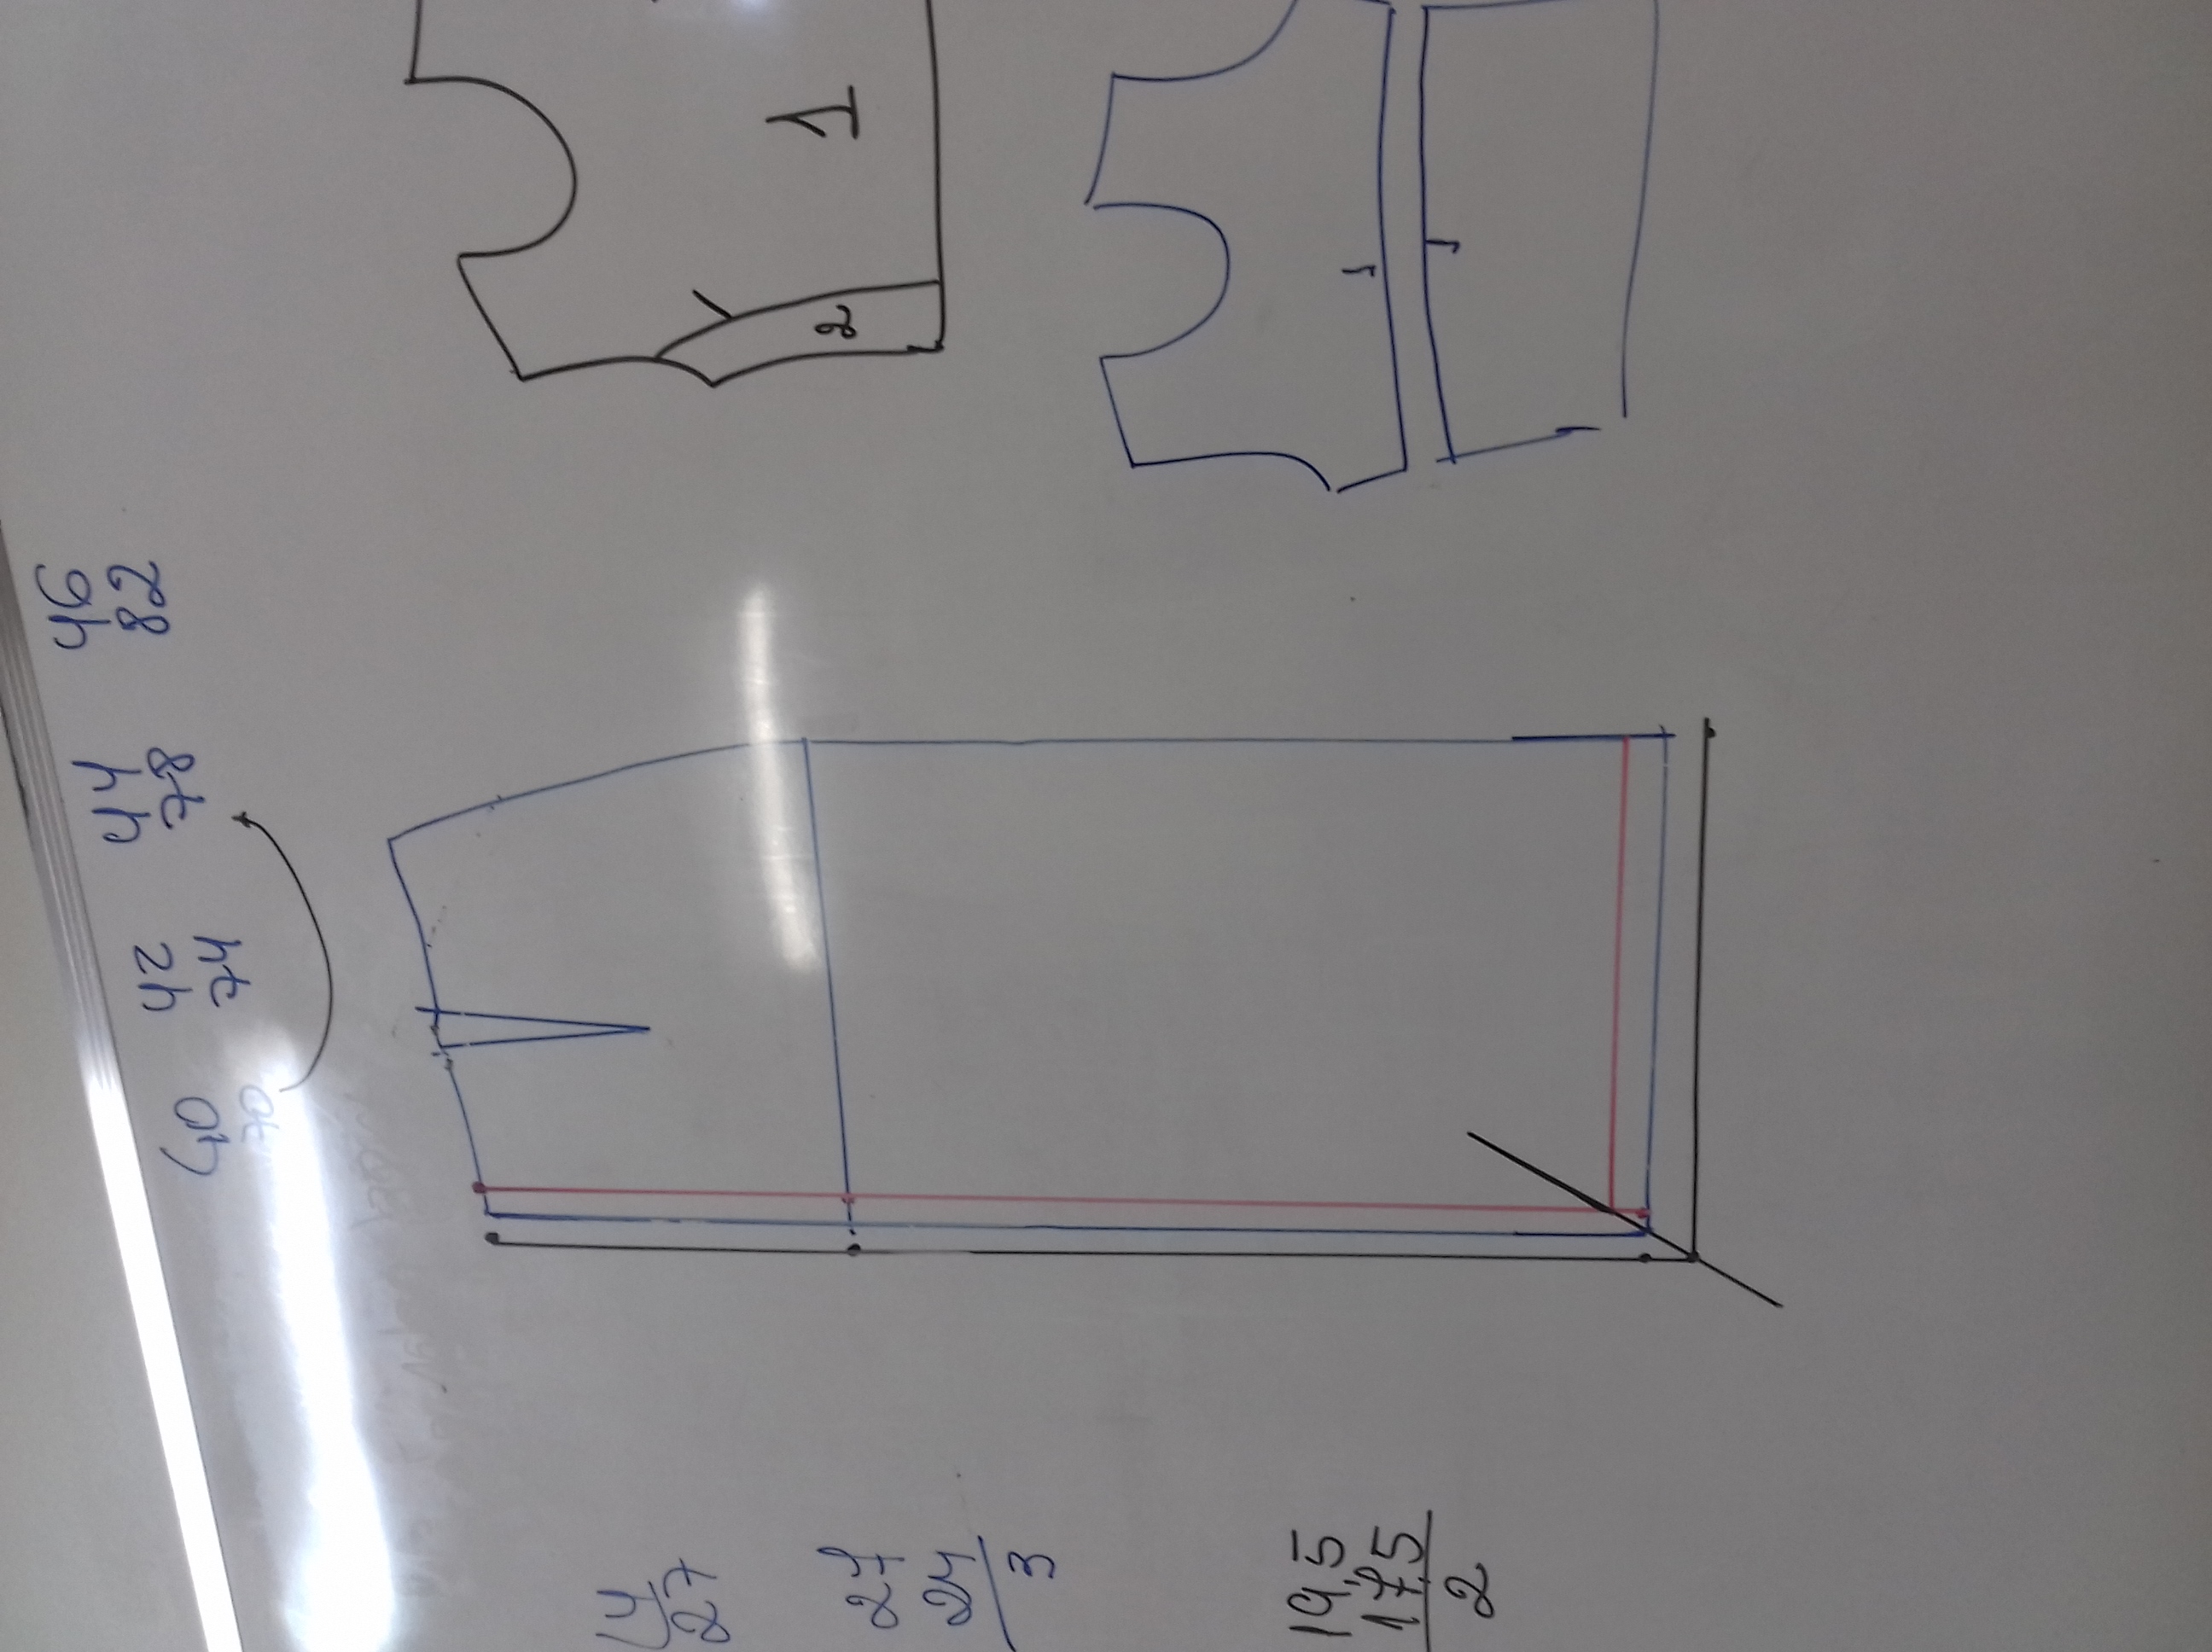 40 42 44 46
70 74 78 82
4
27
27
24
3
19,5
17,5
2
2 1
1
1